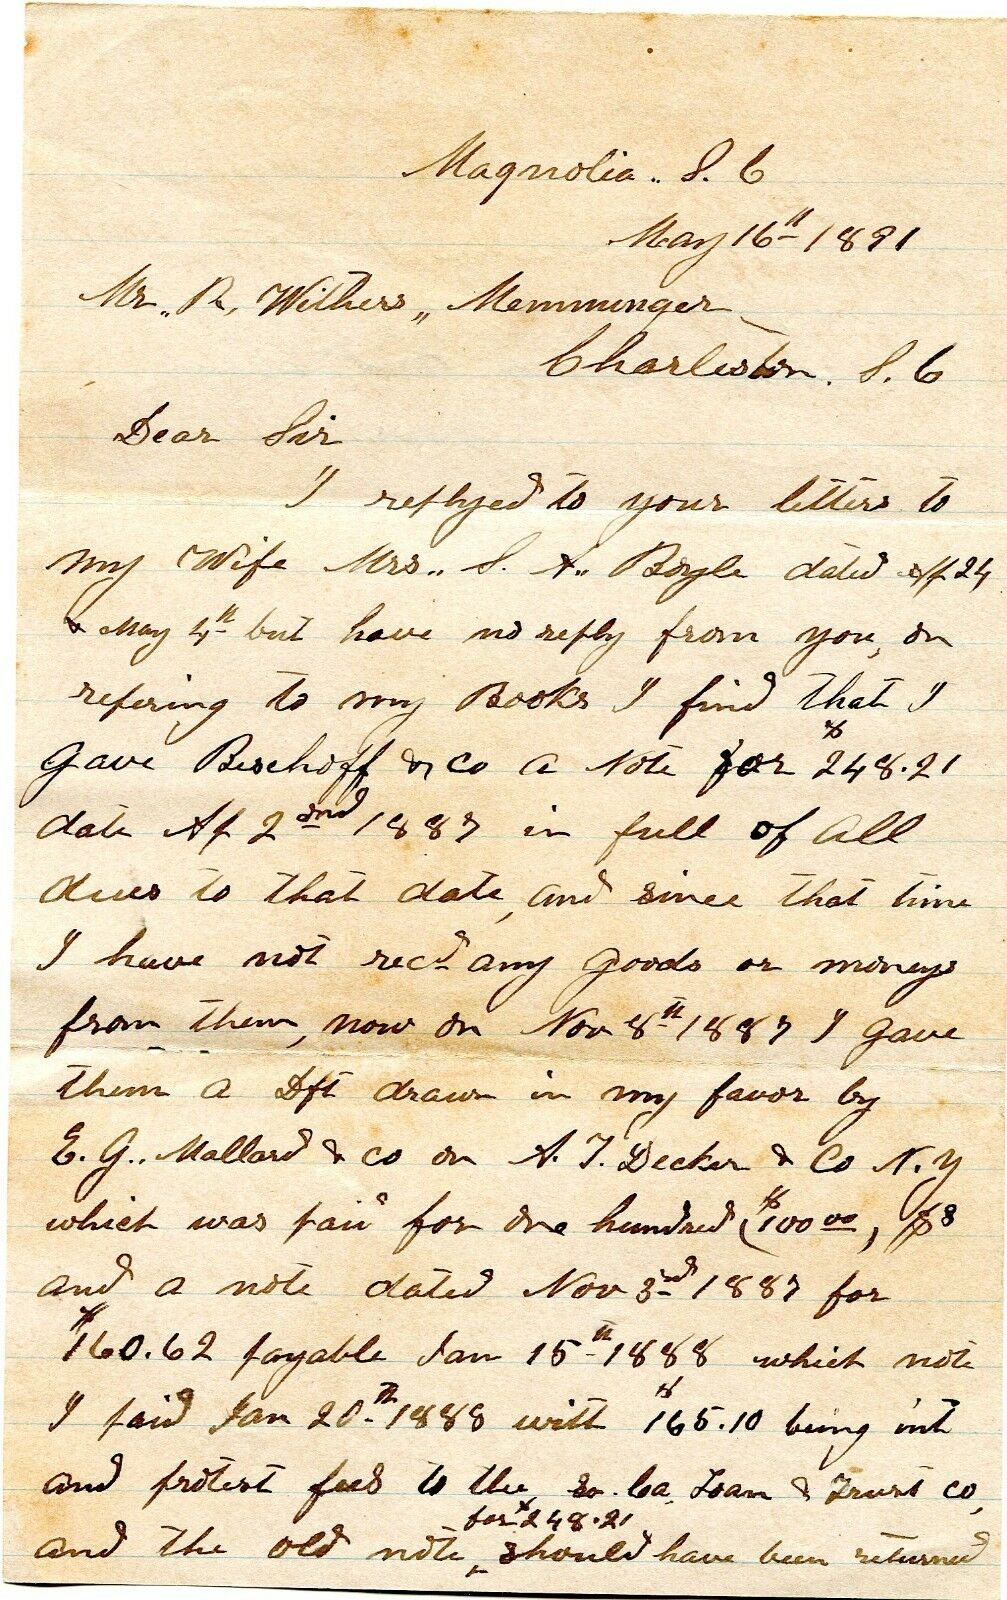 Magnolia.. S. C
May 16th 1891
Mr.. R, Withers,, Memminger
Charleston. S. C
Dear Sir
I replyed to your letters to
my Wife Mrs.. S. A.. Boyle dated Ap 24
& May 4th but have no reply from you, on
refering to my Books I find that I
gave Bischoff & Co a Note for $248.21
date Ap 2nd 1887 in full of all
dues to that date, and since that time
I have not recd any goods or moneys
from them, now on Nov 8th 1887 I gave
them a Dft drawn in my favor by
E. G.. Mallard & Co on A. T. Decker & Co N. Y
which was paid for one hundred ($100 00,
and a note dated Nov 3rd 1887 for
$160.62 payable Jan 15th 1888 which note
I paid Jan 20th 1888 with $165.10 being int
and protest fees to the So. Ca. Loan & Trust Co,
for $248.21
and the old note, should have been returned